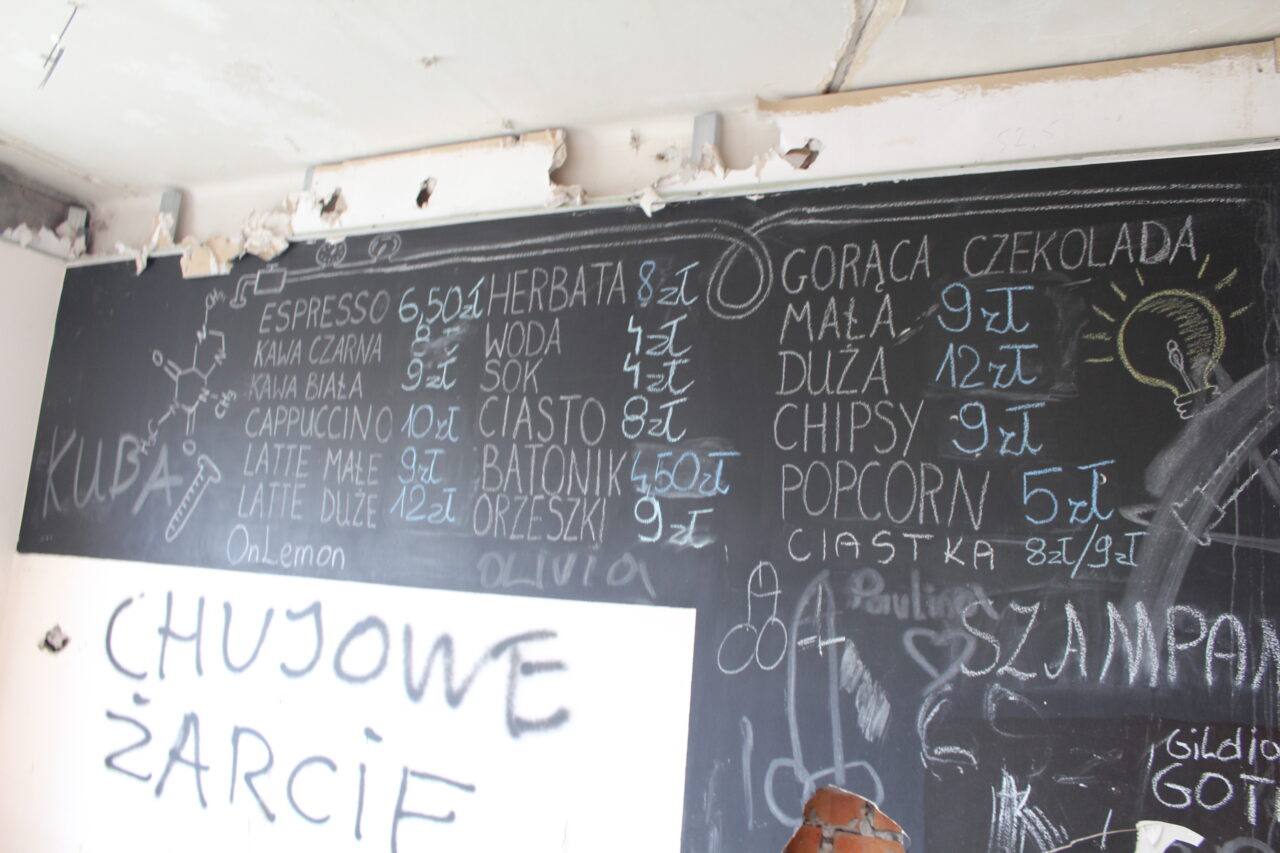 ESPRESSO 6,50zł
KAWA CZARNA 8
KAWA BIAŁA 9zł
CAPPUCCINO 10zł
LATTE MAŁE 9zł
LATTE DUŻE 12zł
OnLemon
HERBATA 8zł
WODA 4zł
SOK 4zł
CIASTO 8zł
BATONIK 4,50zł
ORZESZKI 9zł
OLIVIA
GORĄCA CZEKOLADA
MAŁA 9zł
DUŻA 12zł
CHIPSY 9zł
POPCORN 5zł
CIASTKA 8zł/9zł
KUBA
OH
O
N
N
N
CH3
H3C
O
Paulina
SZAMPAN
CHUJOWE
ŻARCIE